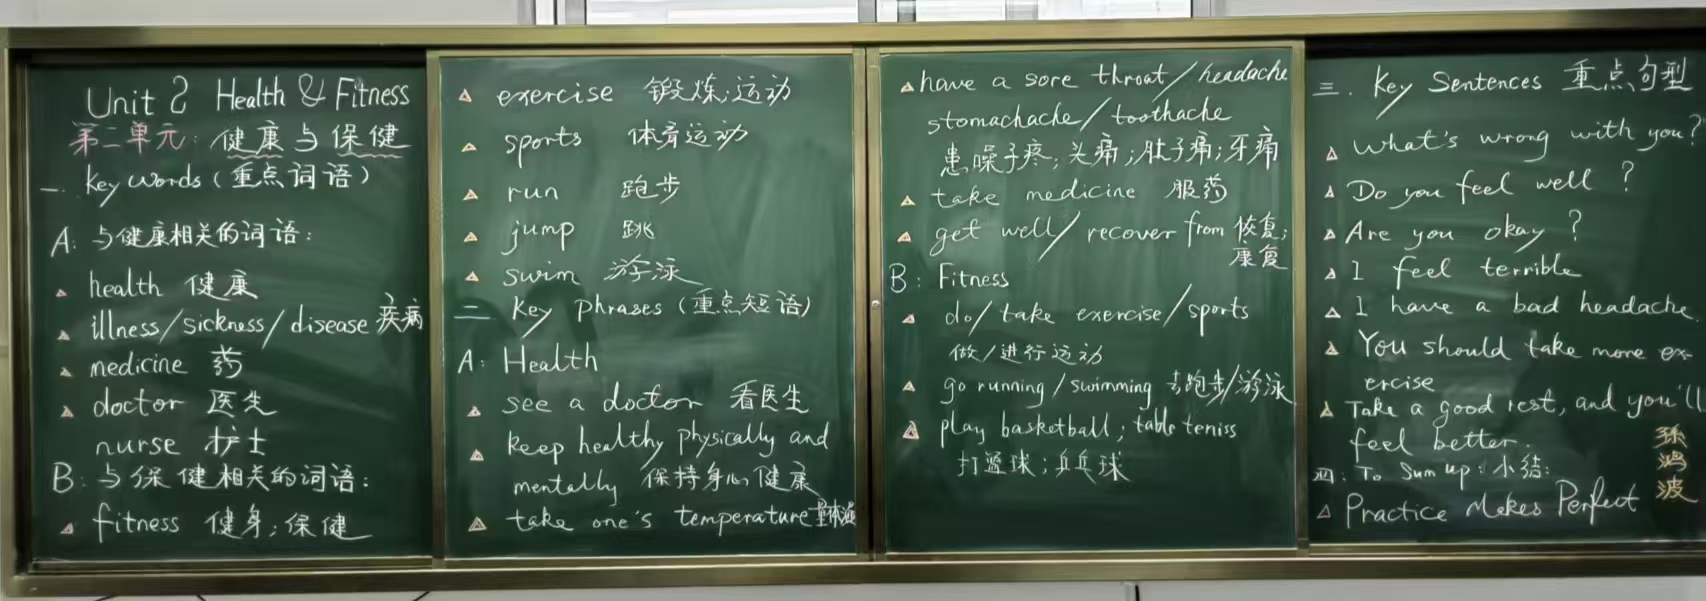 Unit 2 Health & Fitness
第二单元: 健康与保健
一. Key words (重点词语)
A: 与健康相关的词语:
health 健康
illness/sickness/disease 疾病
medicine 药
doctor 医生
nurse 护士
B: 与保健相关的词语:
fitness 健身;保健
exercise 锻炼;运动
sports 体育运动
run 跑步
jump 跳
swim 游泳
二 Key phrases (重点短语)
A: Health
see a doctor 看医生
keep healthy physically and
mentally 保持身心健康
take one's temperature 量体温
have a sore throat/headache
stomachache/toothache
患嗓子疼;头痛;肚子痛;牙痛
take medicine 服药
get well/recover from 恢复;
康复
B: Fitness
do/take exercise/sports
做/进行运动
go running/swimming 去跑步/游泳
play basketball; table teniss
打篮球;乒乓球
三. Key Sentences 重点句型
What's wrong with you?
Do you feel well?
Are you okay?
I feel terrible
I have a bad headache.
You should take more ex-
ercise
Take a good rest, and you'll
feel better.
四: To Sum up: 小结:
Practice Makes Perfect
孫鸿波